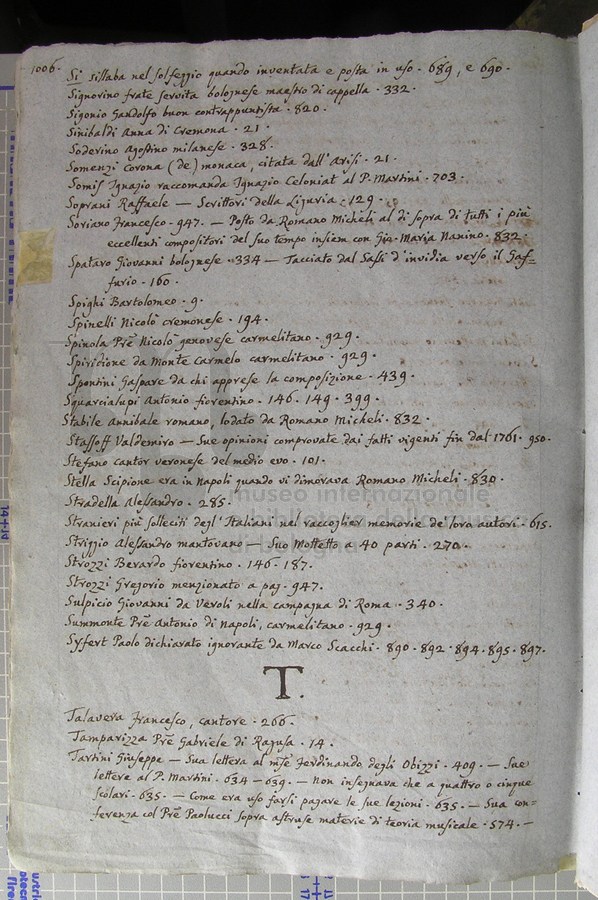 1006.
Si sillaba nel solfeggio quando inventata e posta in uso. 689, e 690.
Signorino frate servita bolognese maestro di cappella. 332.
Sigonio Gandolfo buon contrappuntista. 820.
Sinibaldi Anna di Cremona. 21.
Soderino Agostino milanese. 328.
Somenzi Corona (de) monaca, citata dall'Arisi. 21.
Somis Ignazio raccomanda Ignazio Celoniat al P. Martini. 703.
Soprani Raffaele — Scrittori della Liguria. 129.
Soriano Francesco. 947. — Posto da Romano Micheli al di sopra di tutti i più
eccellenti compositori del suo tempo insiem con Gio. Maria Nanino. 832.
Spataro Giovanni bolognese. 334 — Tacciato dal Sassi d'invidia verso il Gaf=
furio. 160.
Spighi Bartolomeo. 9.
Spinelli Nicolò cremonese. 194.
Spinola Prē Nicolò genovese carmelitano. 929.
Spiridione da Monte Carmelo carmelitano. 929.
Spontini Gaspare da chi apprese la composizione. 439.
Squarcialupi Antonio fiorentino. 146. 149. 399.
Stabile Annibale romano, lodato da Romano Micheli. 832.
Stassoff Valdemiro — Sue opinioni comprovate dai fatti vigenti fin dal 1761. 950.
Stefano cantor veronese del medio evo. 101.
Stella Scipione era in Napoli quando vi dimorava Romano Micheli. 830.
Stradella Alessandro. 285.
Stranieri più solleciti degl'Italiani nel raccoglier memorie de' loro autori. 615.
Striggio Alessandro mantovano — Suo Mottetto a 40 parti. 270.
Strozzi Berardo fiorentino. 146. 187.
Strozzi Gregorio menzionato a pag. 947.
Sulpicio Giovanni da Veroli nella campagna di Roma. 340.
Summonte Prē Antonio di Napoli, carmelitano. 929.
Syfert Paolo dichiarato ignorante da Marco Scacchi. 890. 892. 894. 895. 897.
T.
Talavera Francesco, cantore. 266.
Tamparizza Prē Gabriele di Ragusa. 14.
Tartini Giuseppe — Sua lettera al mse Ferdinando degli Obizzi. 409. — Sue
lettere al P. Martini. 634 — 639. — Non insegnava che a quattro o cinque
scolari. 635. — Come era uso farsi pagare le sue lezioni. 635. — Sua con=
ferenza col Prē Paolucci sopra astruse materie di teoria musicale. 574. —
museo internazionale